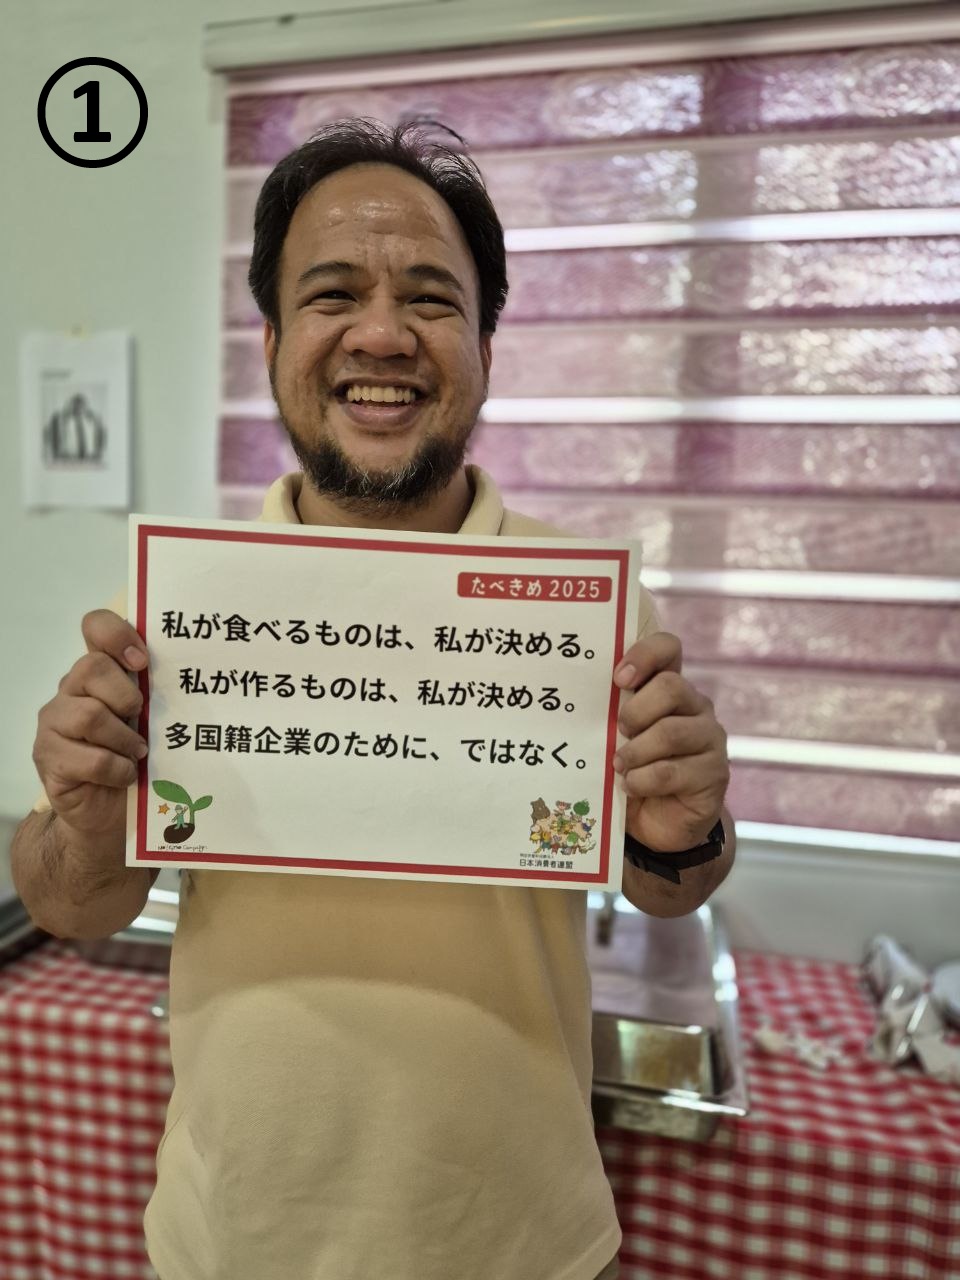 ①
たべきめ 2025
私が食べるものは、私が決める。
私が作るものは、私が決める。
多国籍企業のために、ではなく。
No! GMO Campaign
日本消費者連盟